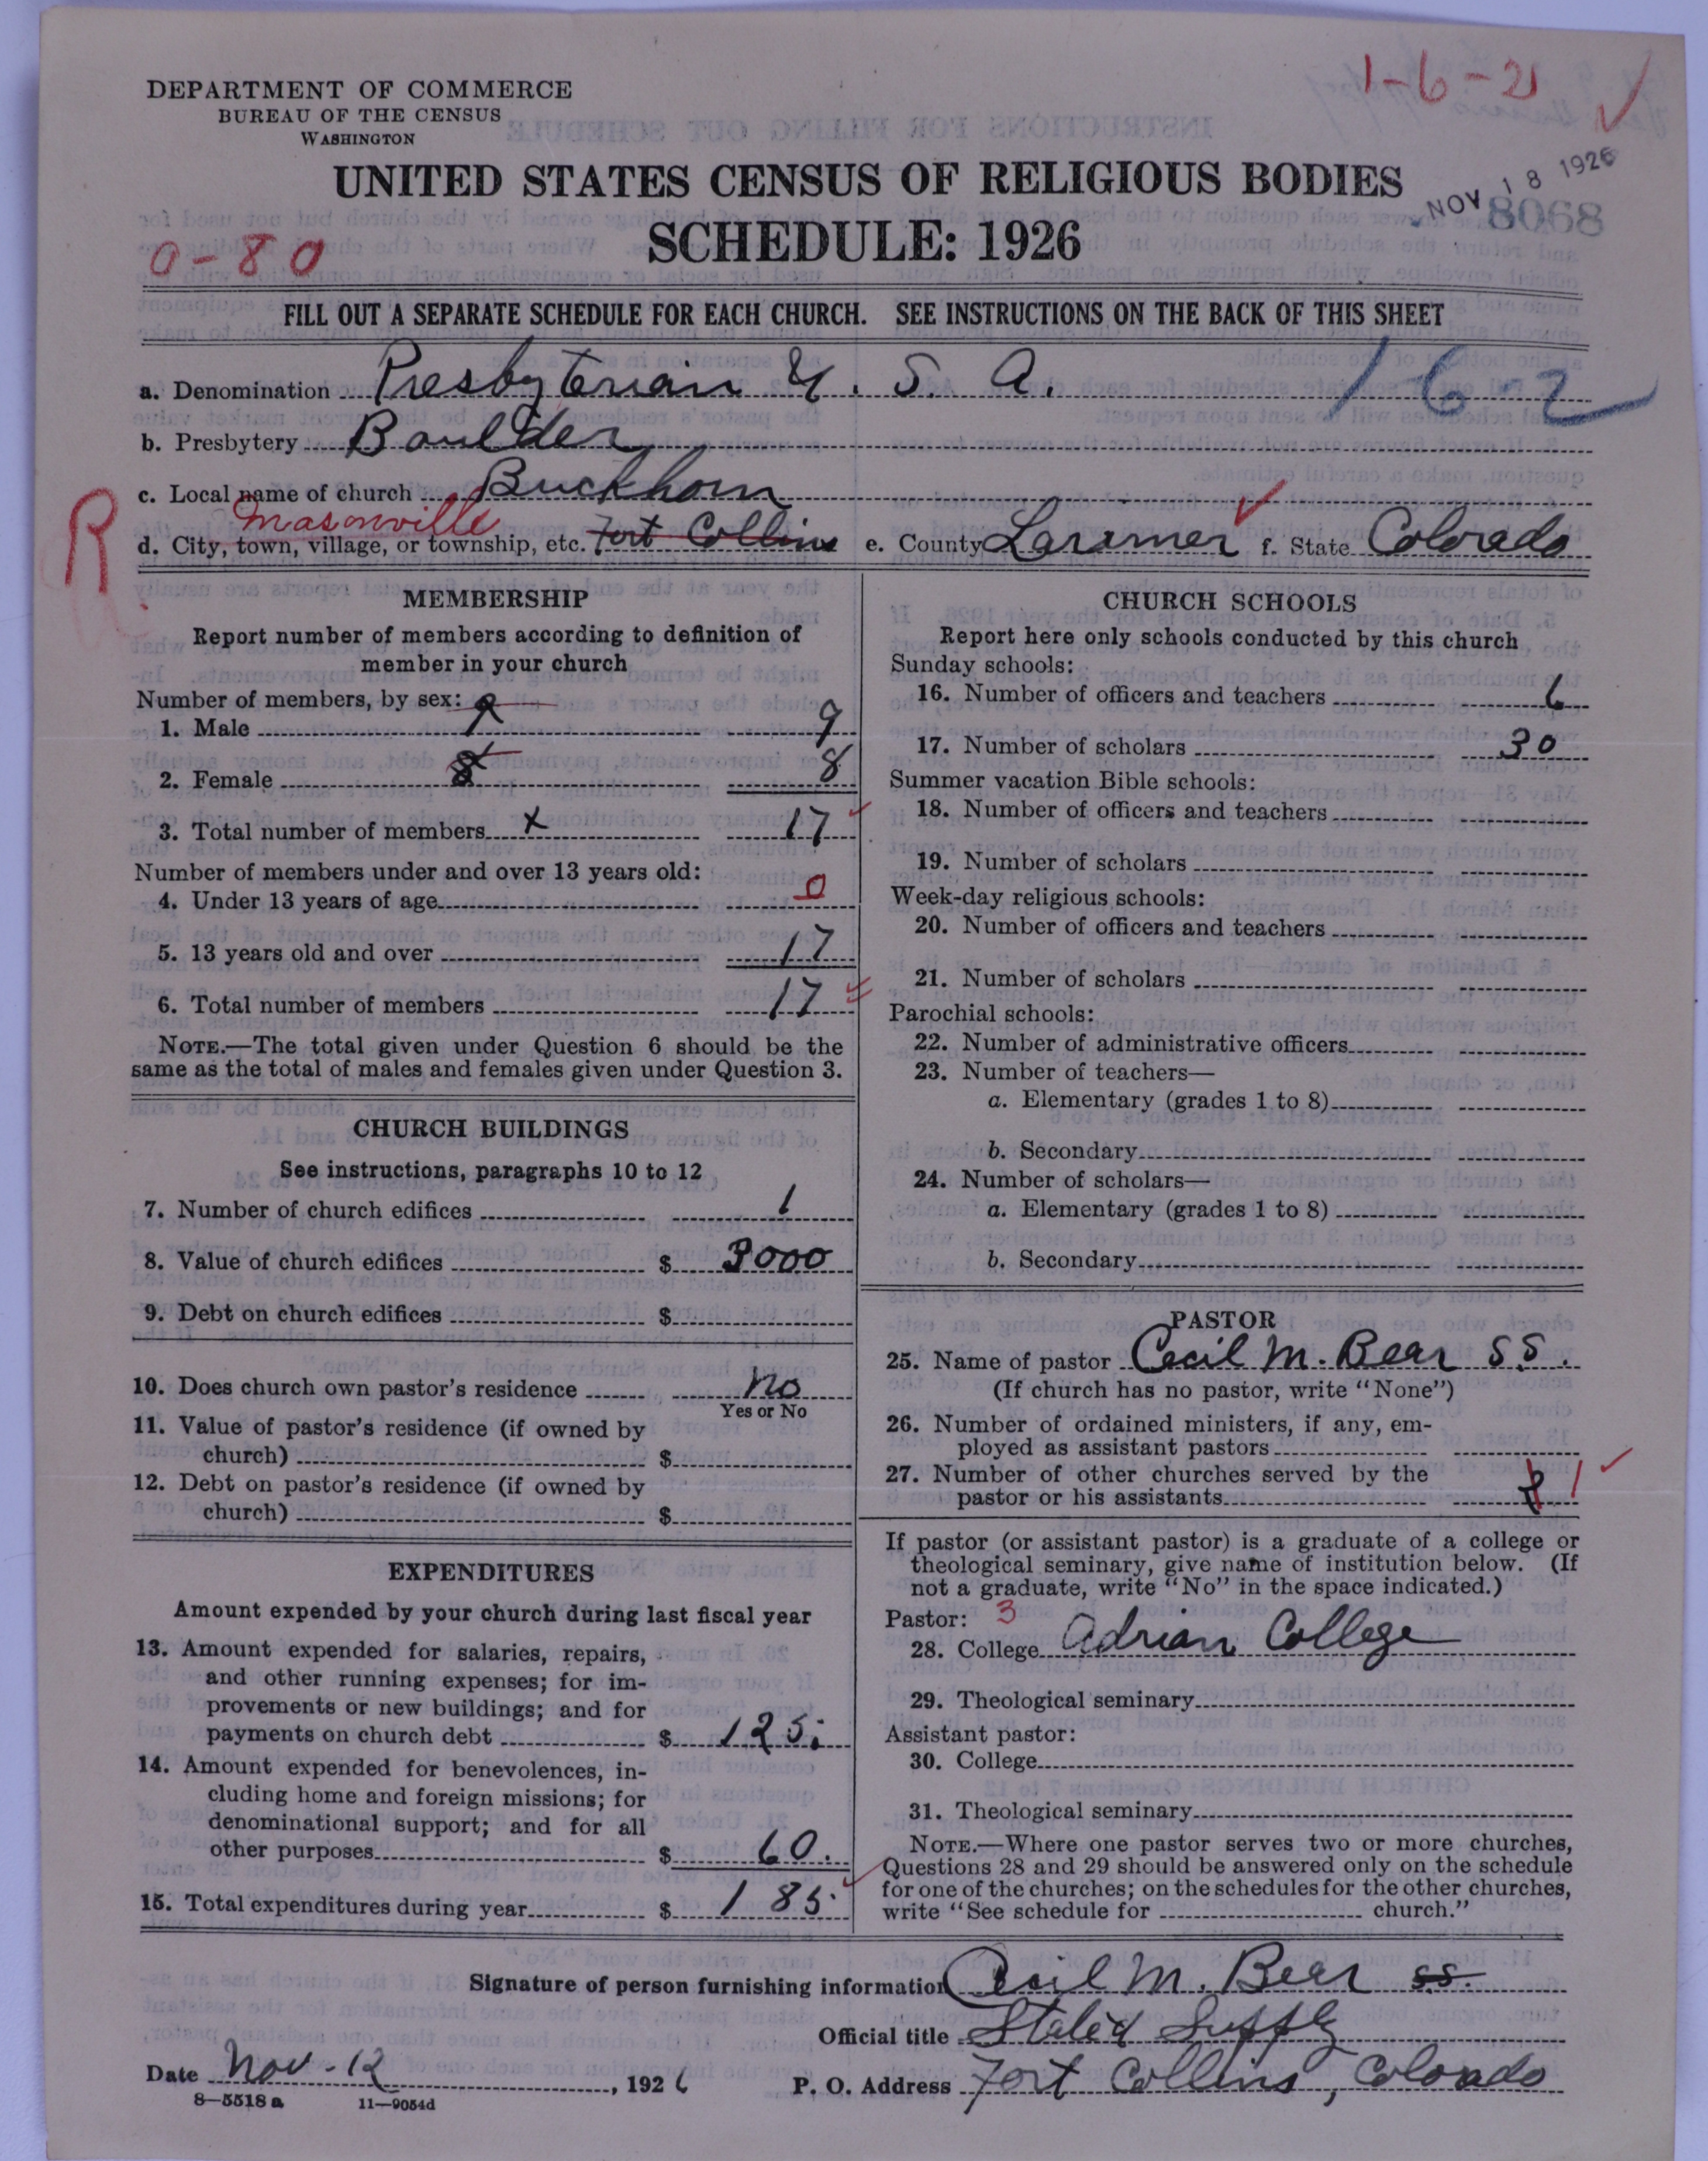 1-6-21
DEPARTMENT OF COMMERCE
BUREAU OF THE CENSUS
WASHINGTON
UNITED STATES CENSUS OF RELIGIOUS BODIES
NOV 18 1926
8068
SCHEDULE: 1926
0-80
FILL OUT A SEPARATE SCHEDULE FOR EACH CHURCH. SEE INSTRUCTIONS ON THE BACK OF THIS SHEET
a. Denomination Presbyterian U. S. A. 16-2
b. Presbytery Boulder
c. Local name of church Buckhorn
R Masonville
d. City, town, village, or township, etc. Fort Collins e. County Larimer f. State Colorado
MEMBERSHIP
Report number of members according to definition of
member in your church
Number of members, by sex:
1. Male 9 9
2. Female 8 8
3. Total number of members x 17
Number of members under and over 13 years old:
4. Under 13 years of age 0
5. 13 years old and over 17
6. Total number of members 17
NOTE.—The total given under Question 6 should be the
same as the total of males and females given under Question 3.
CHURCH BUILDINGS
See instructions, paragraphs 10 to 12
7. Number of church edifices 1
8. Value of church edifices $ 3000
9. Debt on church edifices $
10. Does church own pastor's residence no
Yes or No
11. Value of pastor's residence (if owned by
church) $
12. Debt on pastor's residence (if owned by
church) $
EXPENDITURES
Amount expended by your church during last fiscal year
13. Amount expended for salaries, repairs,
and other running expenses; for im-
provements or new buildings; and for
payments on church debt $ 125.
14. Amount expended for benevolences, in-
cluding home and foreign missions; for
denominational support; and for all
other purposes $ 60.
15. Total expenditures during year $ 185.
CHURCH SCHOOLS
Report here only schools conducted by this church
Sunday schools:
16. Number of officers and teachers 6
17. Number of scholars 30
Summer vacation Bible schools:
18. Number of officers and teachers
19. Number of scholars
Week-day religious schools:
20. Number of officers and teachers
21. Number of scholars
Parochial schools:
22. Number of administrative officers
23. Number of teachers—
a. Elementary (grades 1 to 8)
b. Secondary
24. Number of scholars—
a. Elementary (grades 1 to 8)
b. Secondary
PASTOR
25. Name of pastor Cecil M. Bear S.S.
(If church has no pastor, write "None")
26. Number of ordained ministers, if any, em-
ployed as assistant pastors
27. Number of other churches served by the
pastor or his assistants 1
If pastor (or assistant pastor) is a graduate of a college or
theological seminary, give name of institution below. (If
not a graduate, write "No" in the space indicated.)
Pastor: 3
28. College Adrian College
29. Theological seminary
Assistant pastor:
30. College
31. Theological seminary
NOTE.—Where one pastor serves two or more churches,
Questions 28 and 29 should be answered only on the schedule
for one of the churches; on the schedules for the other churches,
write "See schedule for church."
Signature of person furnishing information Cecil M. Bear S.S.
Official title Stated Supply
Date Nov-12, 1926 P. O. Address Fort Collins, Colorado
8—5518 a 11—9054d